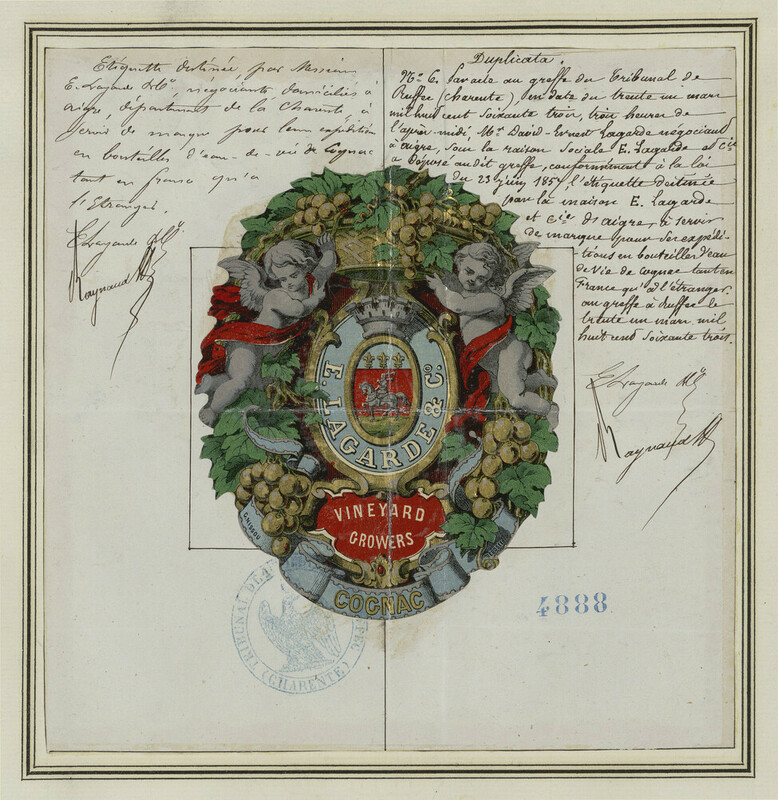 Etiquette destinée par Messieurs
E. Lagarde & Co. négociants domiciliés à
aigre, département de la Charente à
servir de marque pour leurs expéditions
en bouteilles d'eau-de-vie de Cognac
tant en france qu'à
l'Etranger.
E Lagarde & Co
Raynaud
Duplicata.
No 6. Par acte au greffe du Tribunal de
Ruffec (charente), en date du trente un mars
mil huit cent soixante trois, trois heures de
l'après-midi, Mr David-Ernest Lagarde négociant
à aigre, sous la raison Sociale E. Lagarde et Cie
a déposé audit greffe, conformément à la loi
du 23 juin 1857, l'étiquette destinée
par la maison E. Lagarde
et Cie d'aigre, à servir
de marque pour ses expédi-
tions en bouteilles d'eau
de Vie de Cognac tant en
France qu'à l'étranger.
au greffe à Ruffec le
trente un mars mil
huit cent soixante trois.
E Lagarde & Co
Raynaud
E. LAGARDE & Co.
VINEYARD
GROWERS
COGNAC
4888
TRIBUNAL DE
(CHARENTE)